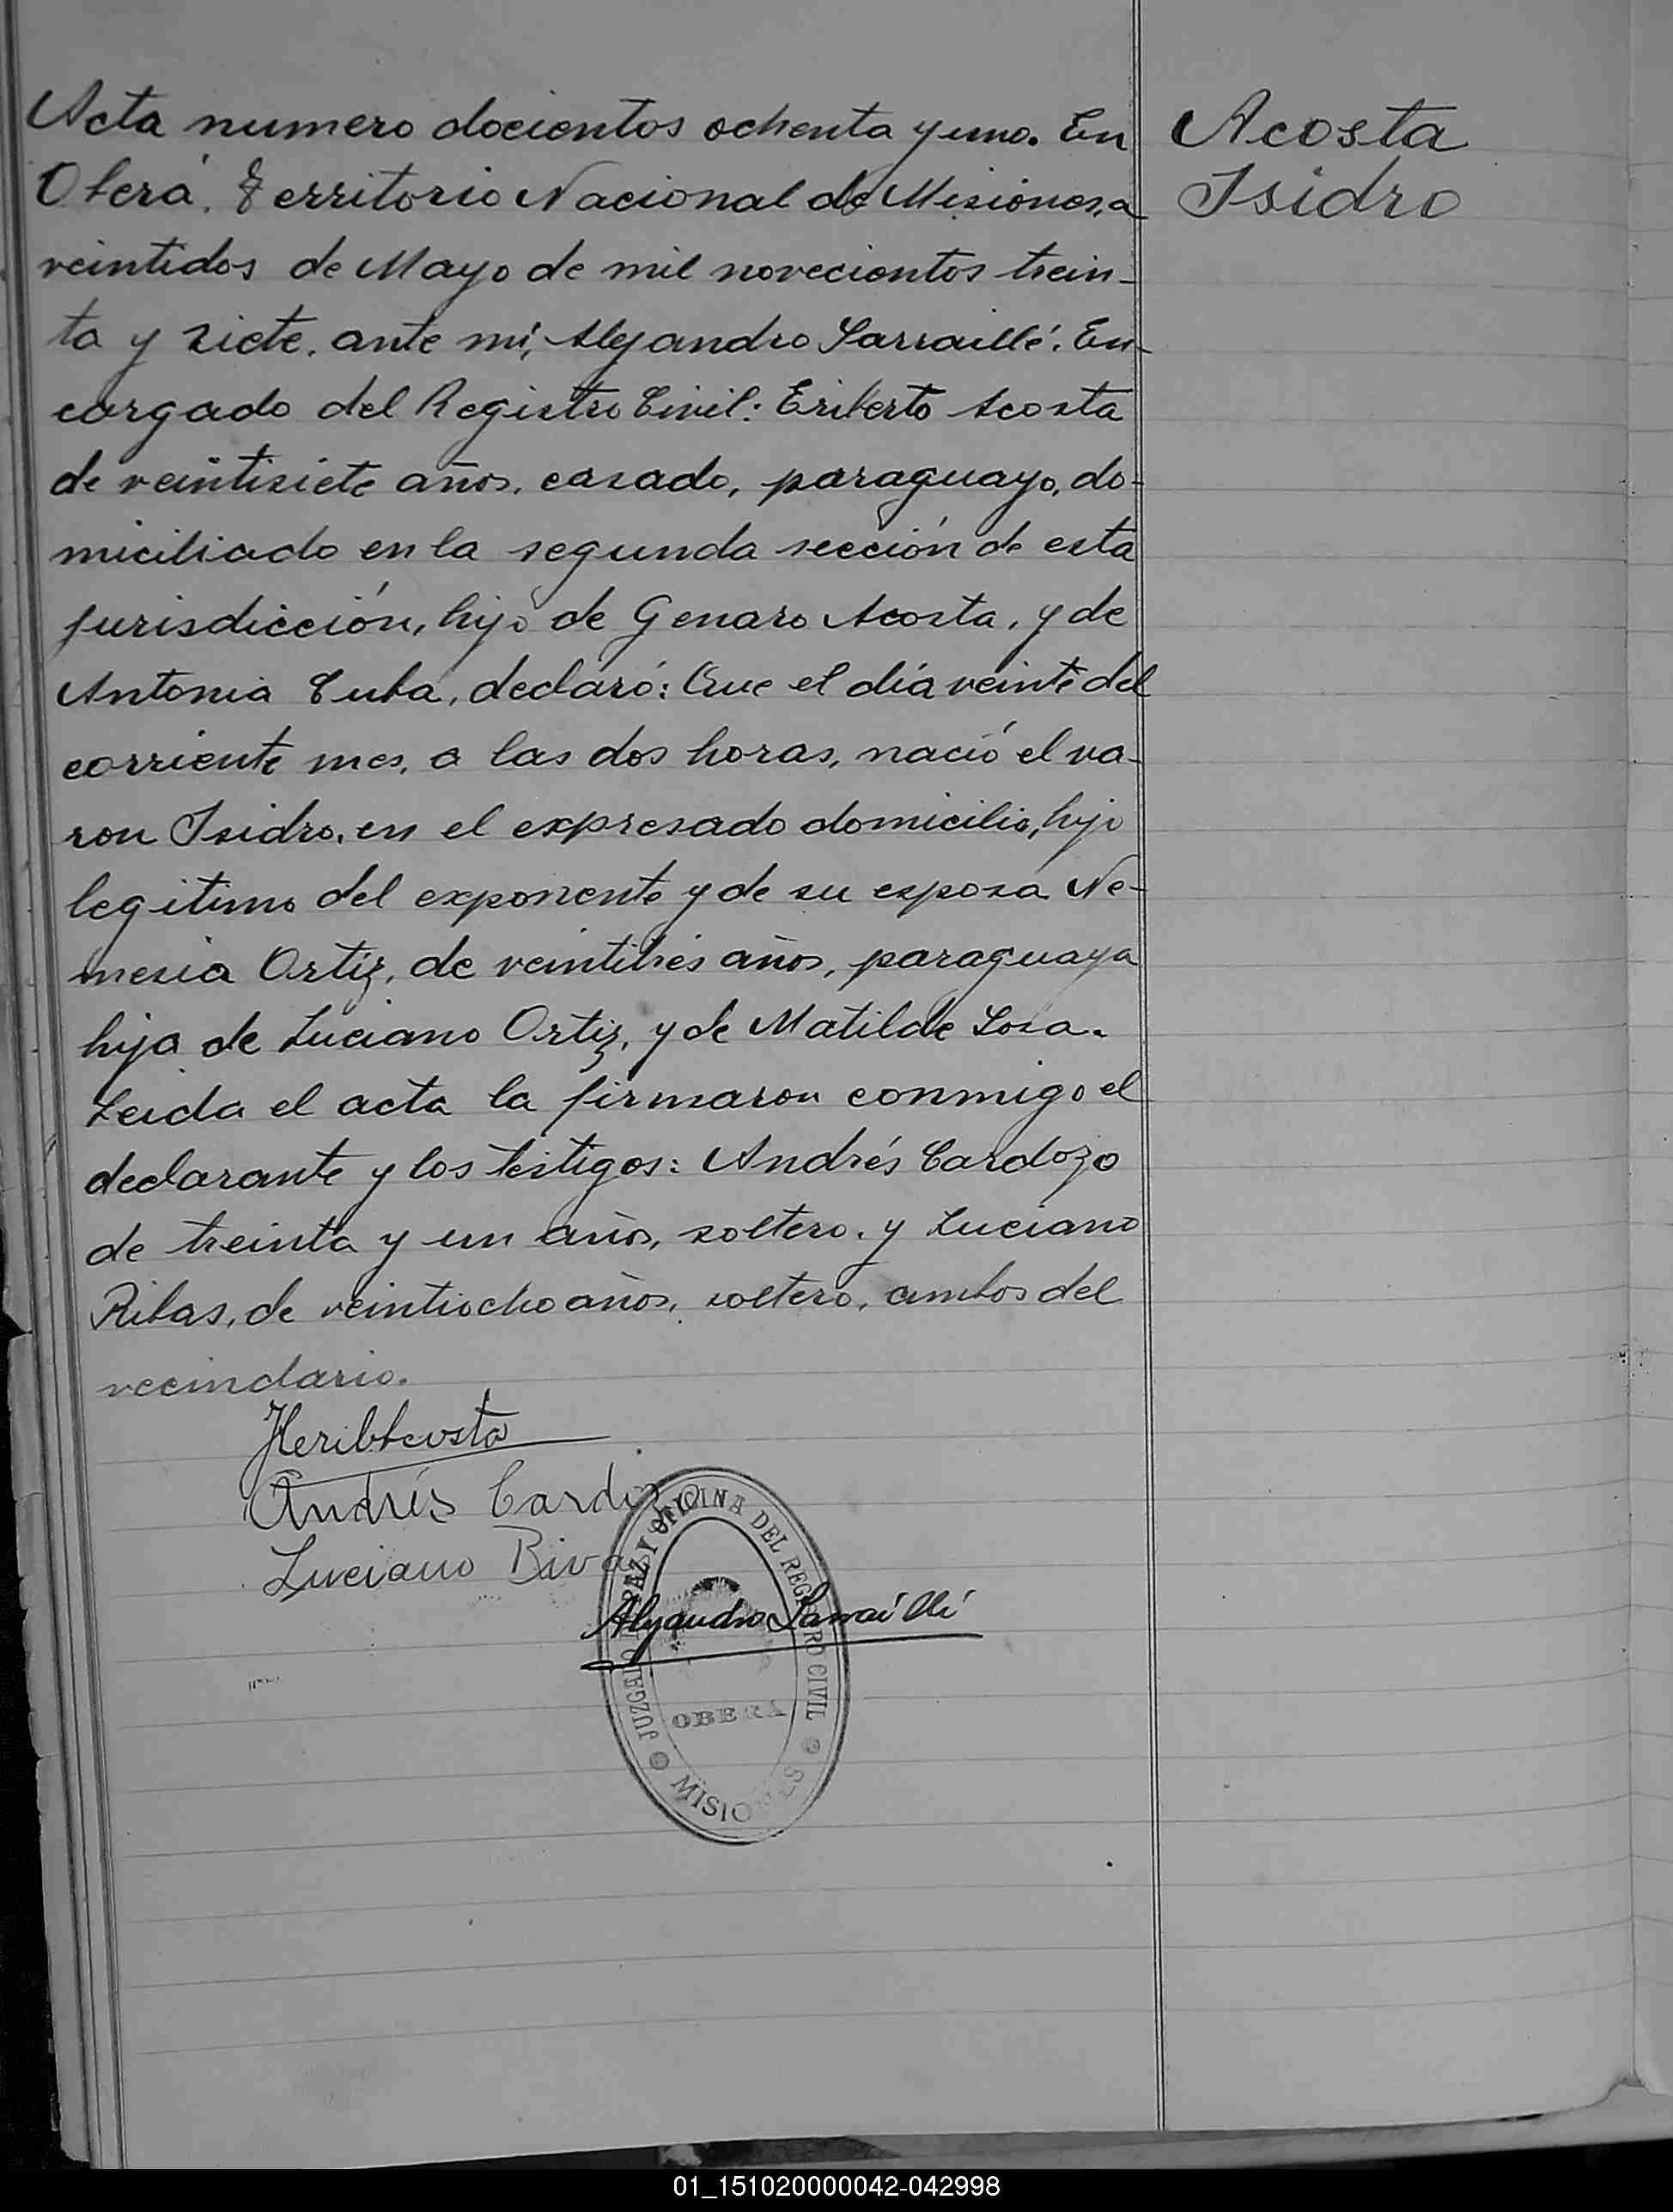 Acta numero docientos ochenta y uno. En
Oberá, Territorio Nacional de Misiones, a
veintidos de Mayo de mil novecientos trein-
ta y siete, ante mi, Alejandro Sarraillé, En-
cargado del Registro Civil: Eriberto Acosta
de veintisiete años, casado, paraguayo, do-
miciliado en la segunda sección de esta
jurisdicción, hijo de Genaro Acosta, y de
Antonia Cuba, declaró: Que el día veinte del
corriente mes, a las dos horas, nació el va-
ron Isidro, en el expresado domicilio, hijo
legitimo del exponente y de su esposa Ne-
mesia Ortiz, de veintitrés años, paraguaya
hija de Luciano Ortiz, y de Matilde Sosa.
Leida el acta la firmaron conmigo el
declarante y los testigos: Andrés Cardozo
de treinta y un años, soltero, y Luciano
Ribas, de veintiocho años, soltero, ambos del
vecindario.
Acosta
Isidro
Andrés Cardozo
Luciano Rivas
Alejandro Sarraillé
JUZGADO DE PAZ Y OFICINA DEL REGISTRO CIVIL
OBERÁ
MISIONES
01_151020000042-042998